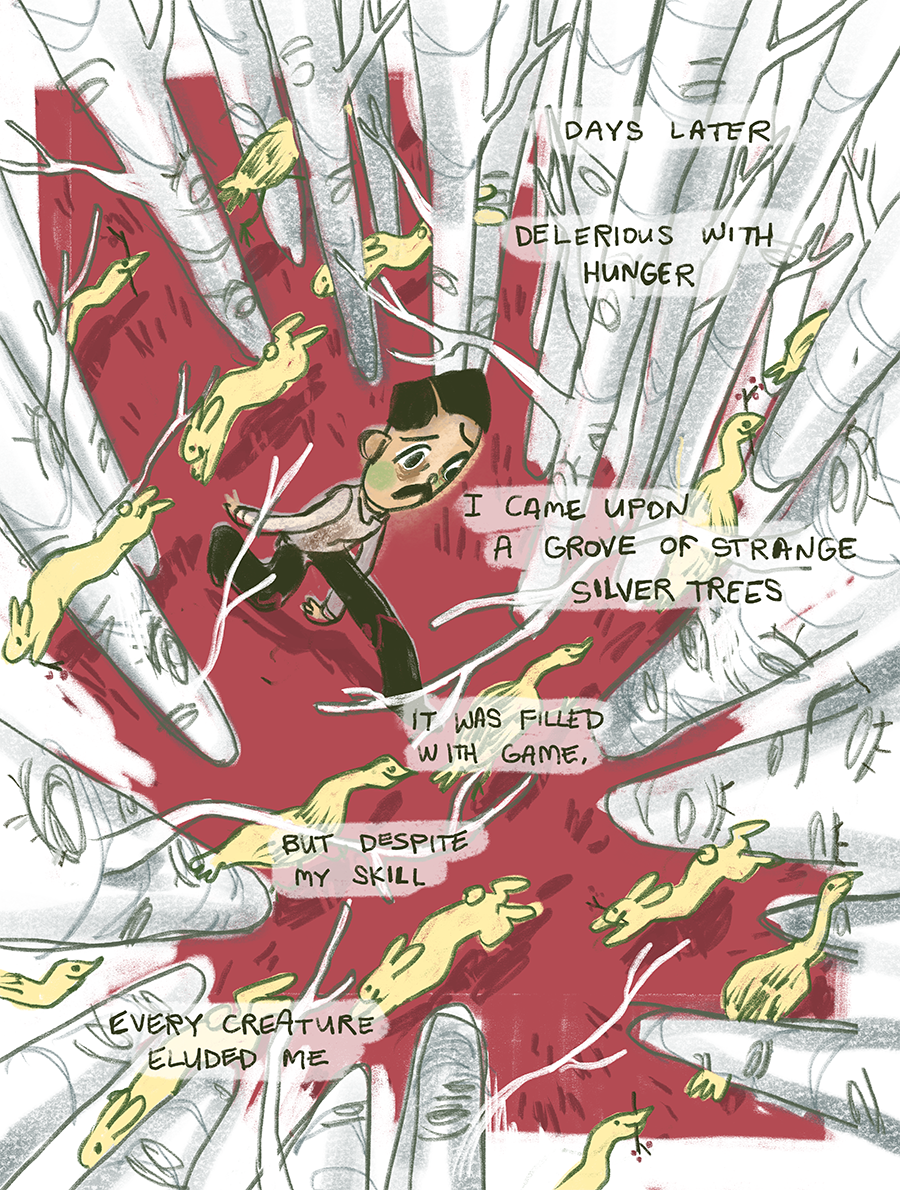 DAYS LATER
DELERIOUS WITH
HUNGER
I CAME UPON
A GROVE OF STRANGE
SILVER TREES
IT WAS FILLED
WITH GAME,
BUT DESPITE
MY SKILL
EVERY CREATURE
ELUDED ME